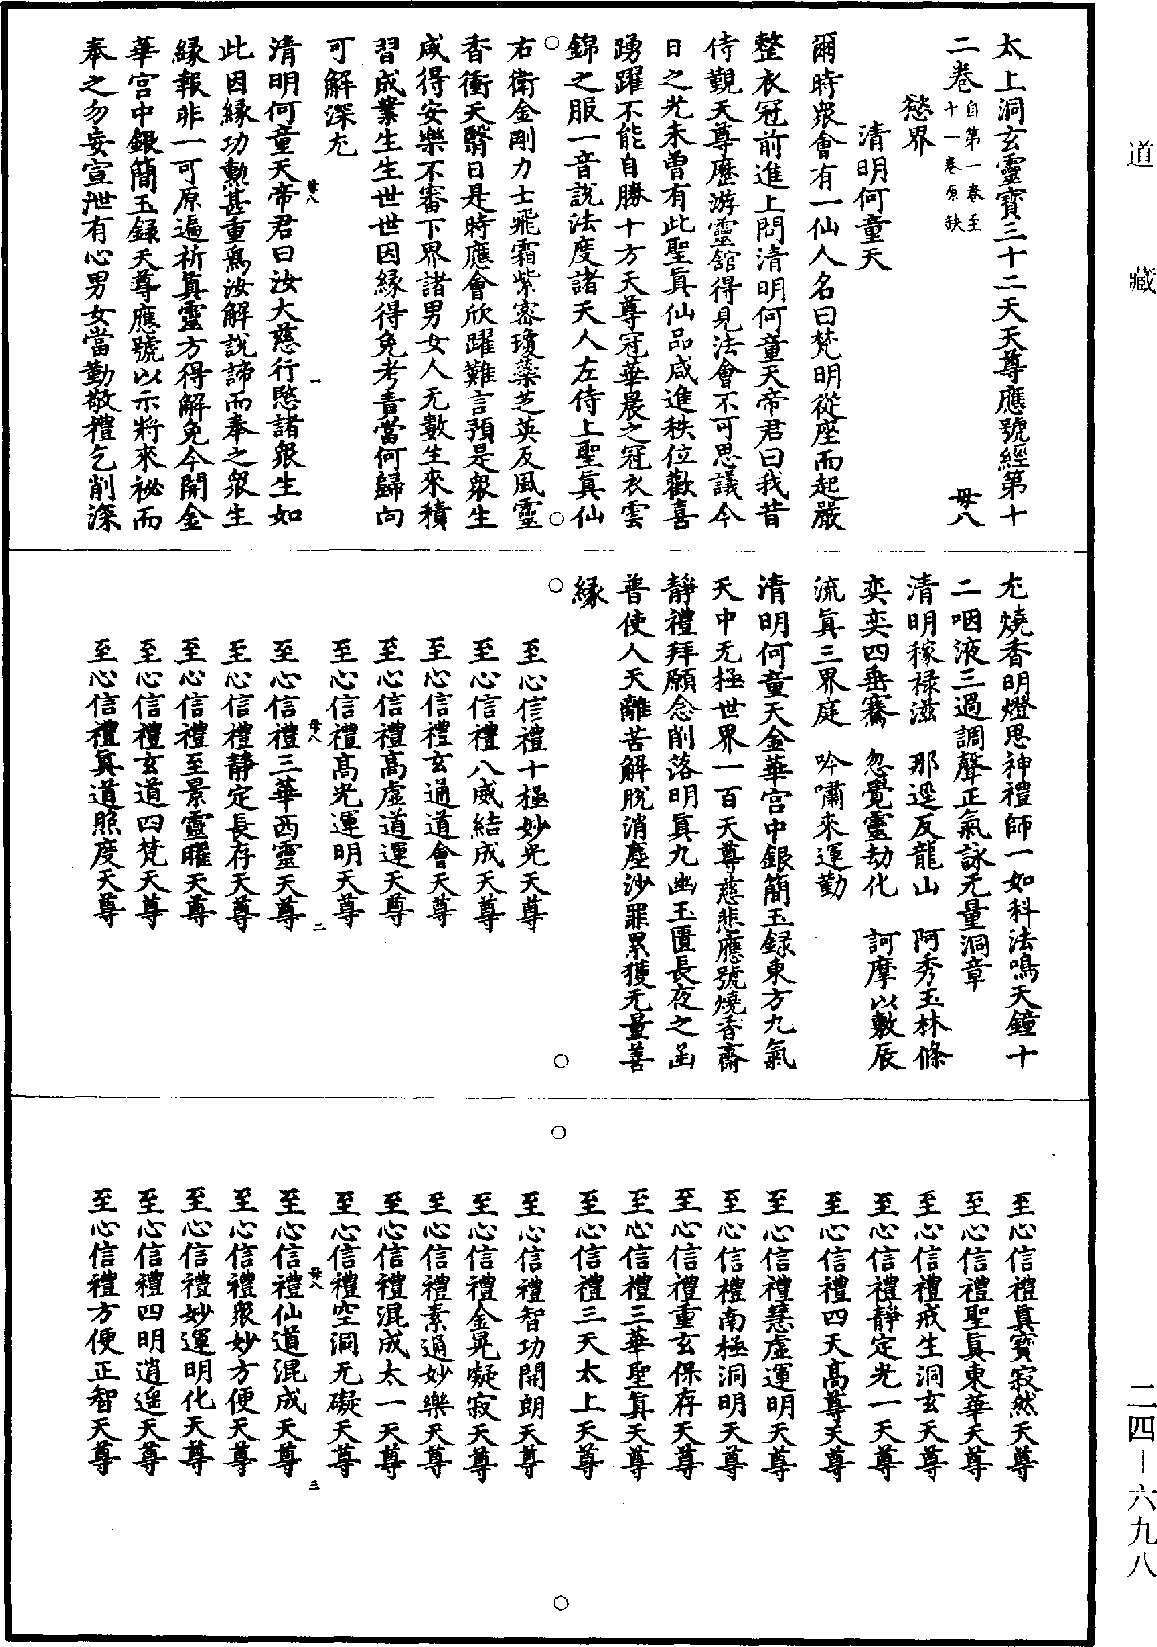 道藏
太上洞玄靈寶三十二天天尊應號經第十
二卷 自第一卷至
十一卷原缺 毋八
慾界
清明何童天
爾時衆會有一仙人名曰梵明從座而起嚴
整衣冠前進上問清明何童天帝君曰我昔
侍觀天尊歷游靈館得見法會不可思議今
日之光未曾有此聖眞仙品咸進秩位歡喜
踴躍不能自勝十方天尊冠華晨之冠衣雲
錦之服一音說法度諸天人左侍上聖眞仙
右衛金剛力士飛霜紫宻瓊蘂芝英反風靈
香衝天翳日是時應會欣躍難言預是衆生
咸得安樂不審下界諸男女人无數生來積
習成業生生世世因緣得免考責當何歸向
可解深尤
清明何童天帝君曰汝大慈行愍諸衆生如
此因緣功勳甚重爲汝解說諦而奉之衆生
緣報非一可原遍祈眞靈方得解免今開金
華宫中銀簡玉録天尊應號以示將來祕而
奉之勿妄宣泄有心男女當勤敬禮乞削深
毋八 一
尤燒香明燈思神禮師一如科法鳴天鐘十
二咽液三過調聲正氣詠无量洞章
清明稼祿滋 那逕反龍山 阿秀玉林條
奕奕四垂騫 忽覺靈劫化 訶摩以敷辰
流眞三界庭 吟嘯來運勤
清明何童天金華宫中銀簡玉録東方九氣
天中无極世界一百天尊慈悲應號燒香齋
靜禮拜願念削落明眞九幽玉匱長夜之函
普使人天離苦解脫消塵沙罪累獲无量善
緣
至心信禮十極妙光天尊
至心信禮八威結成天尊
至心信禮玄通道會天尊
至心信禮高虛道運天尊
至心信禮高光運明天尊
至心信禮三華西靈天尊
至心信禮靜定長存天尊
至心信禮至景靈曜天尊
至心信禮玄道四梵天尊
至心信禮眞道照度天尊
毋八 二
至心信禮眞寶寂然天尊
至心信禮聖眞東華天尊
至心信禮戒生洞玄天尊
至心信禮靜定光一天尊
至心信禮四天高尊天尊
至心信禮慧虛運明天尊
至心信禮南極洞明天尊
至心信禮重玄保存天尊
至心信禮三華聖眞天尊
至心信禮三天太上天尊
至心信禮智功開朗天尊
至心信禮金晃凝寂天尊
至心信禮素通妙樂天尊
至心信禮混成太一天尊
至心信禮空洞无礙天尊
至心信禮仙道混成天尊
至心信禮衆妙方便天尊
至心信禮妙運明化天尊
至心信禮四明逍遥天尊
至心信禮方便正智天尊
毋八 三
二四－六九八